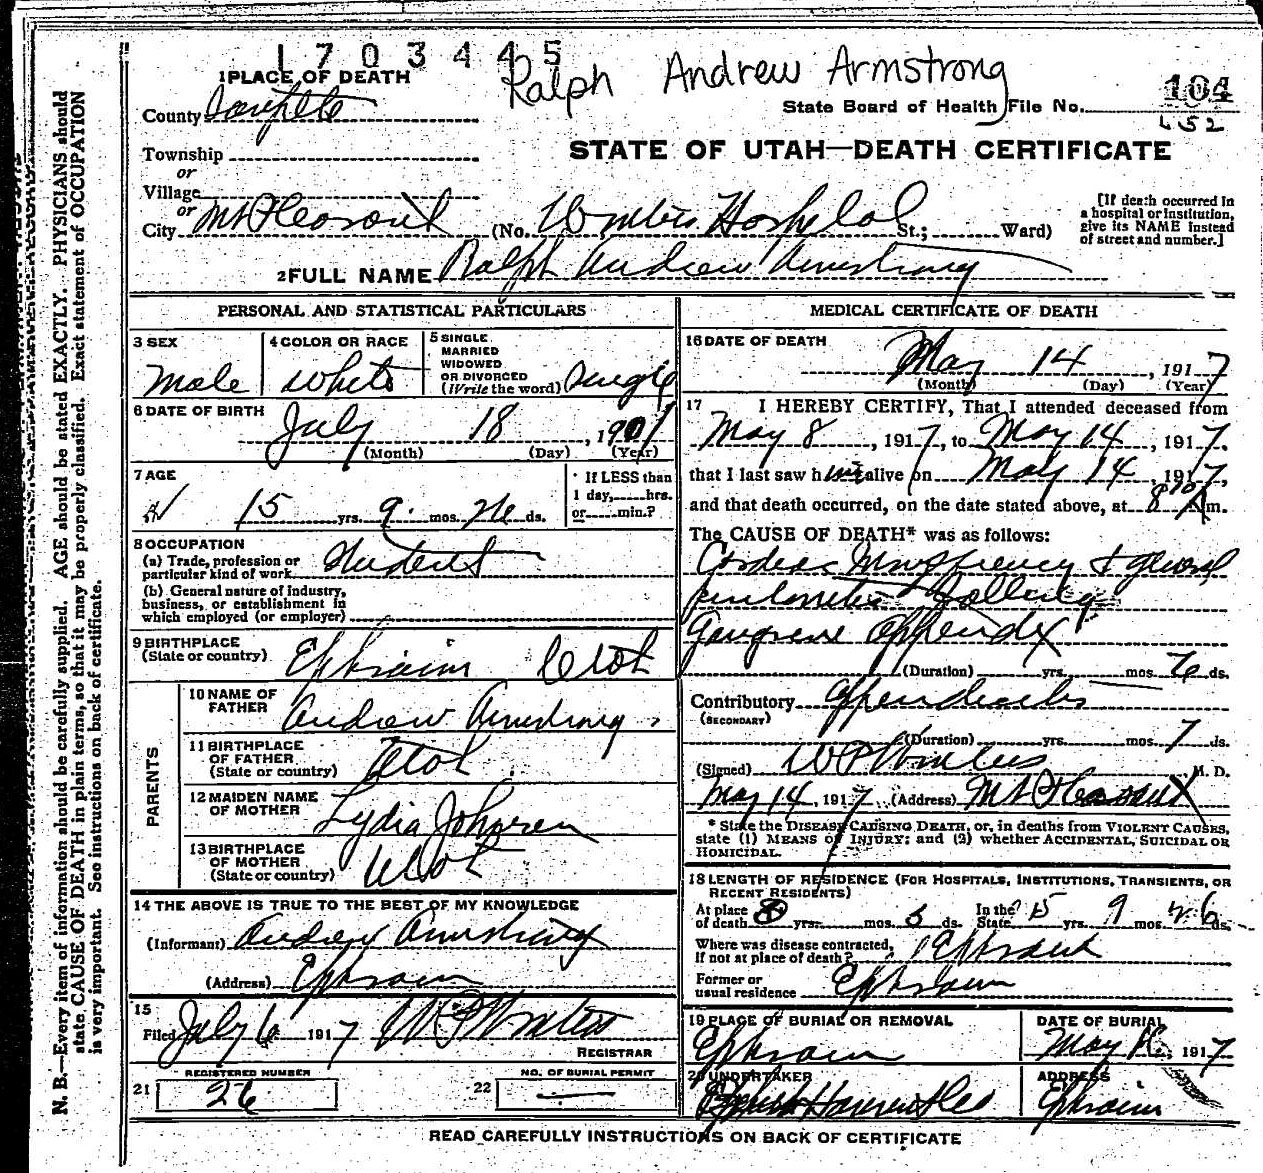 1703445
Ralph Andrew Armstrong
1 PLACE OF DEATH
County Sanpete
State Board of Health File No. 104
652
Township
or
Village
or
STATE OF UTAH—DEATH CERTIFICATE
City Mt Pleasant (No. Winters Hospital St.; Ward)
[If death occurred in
a hospital or institution,
give its NAME instead
of street and number.]
2 FULL NAME Ralph Andrew Armstrong
PERSONAL AND STATISTICAL PARTICULARS
3 SEX
Male
4 COLOR OR RACE
White
5 SINGLE
MARRIED
WIDOWED
OR DIVORCED
(Write the word) Single
6 DATE OF BIRTH
July 18, 1901
(Month) (Day) (Year)
7 AGE
15 yrs. 9 mos. 26 ds.
If LESS than
1 day, hrs.
or min.?
8 OCCUPATION
(a) Trade, profession or
particular kind of work Student
(b) General nature of industry,
business, or establishment in
which employed (or employer)
9 BIRTHPLACE
(State or country) Ephraim Utah
PARENTS
10 NAME OF
FATHER Andrew Armstrong
11 BIRTHPLACE
OF FATHER
(State or country) Utah
12 MAIDEN NAME
OF MOTHER Lydia Johnsen
13 BIRTHPLACE
OF MOTHER
(State or country) Utah
14 THE ABOVE IS TRUE TO THE BEST OF MY KNOWLEDGE
(Informant) Andrew Armstrong
(Address) Ephraim
15
Filed July 6 1917 W P Winters
REGISTRAR
21 REGISTERED NUMBER
26
22 NO. OF BURIAL PERMIT
MEDICAL CERTIFICATE OF DEATH
16 DATE OF DEATH
May 14, 1917
(Month) (Day) (Year)
17 I HEREBY CERTIFY, That I attended deceased from
May 8, 1917, to May 14, 1917.
that I last saw him alive on May 14, 1917,
and that death occurred, on the date stated above, at 8 A m.
The CAUSE OF DEATH* was as follows:
& general
Gangrene Appendix
(Duration) yrs. mos. 6 ds.
Contributory Appendicitis
(SECONDARY)
(Duration) yrs. mos. 7 ds.
(Signed) W P Winters M. D.
May 14, 1917 (Address) Mt Pleasant
* State the DISEASE CAUSING DEATH, or, in deaths from VIOLENT CAUSES,
state (1) MEANS OF INJURY; and (2) whether ACCIDENTAL, SUICIDAL OR
HOMICIDAL.
18 LENGTH OF RESIDENCE (FOR HOSPITALS, INSTITUTIONS, TRANSIENTS, OR
RECENT RESIDENTS)
At place
of death yrs. mos. 6 ds. In the State 15 yrs. 9 mos. 26 ds.
Where was disease contracted,
if not at place of death? Ephraim
Former or
usual residence Ephraim
19 PLACE OF BURIAL OR REMOVAL
Ephraim
DATE OF BURIAL
May 1917
20 UNDERTAKER
ADDRESS
Ephraim
READ CAREFULLY INSTRUCTIONS ON BACK OF CERTIFICATE
N. B.—Every item of information should be carefully supplied. AGE should be stated EXACTLY. PHYSICIANS should
state CAUSE OF DEATH in plain terms, so that it may be properly classified. Exact statement of OCCUPATION
is very important. See instructions on back of certificate.